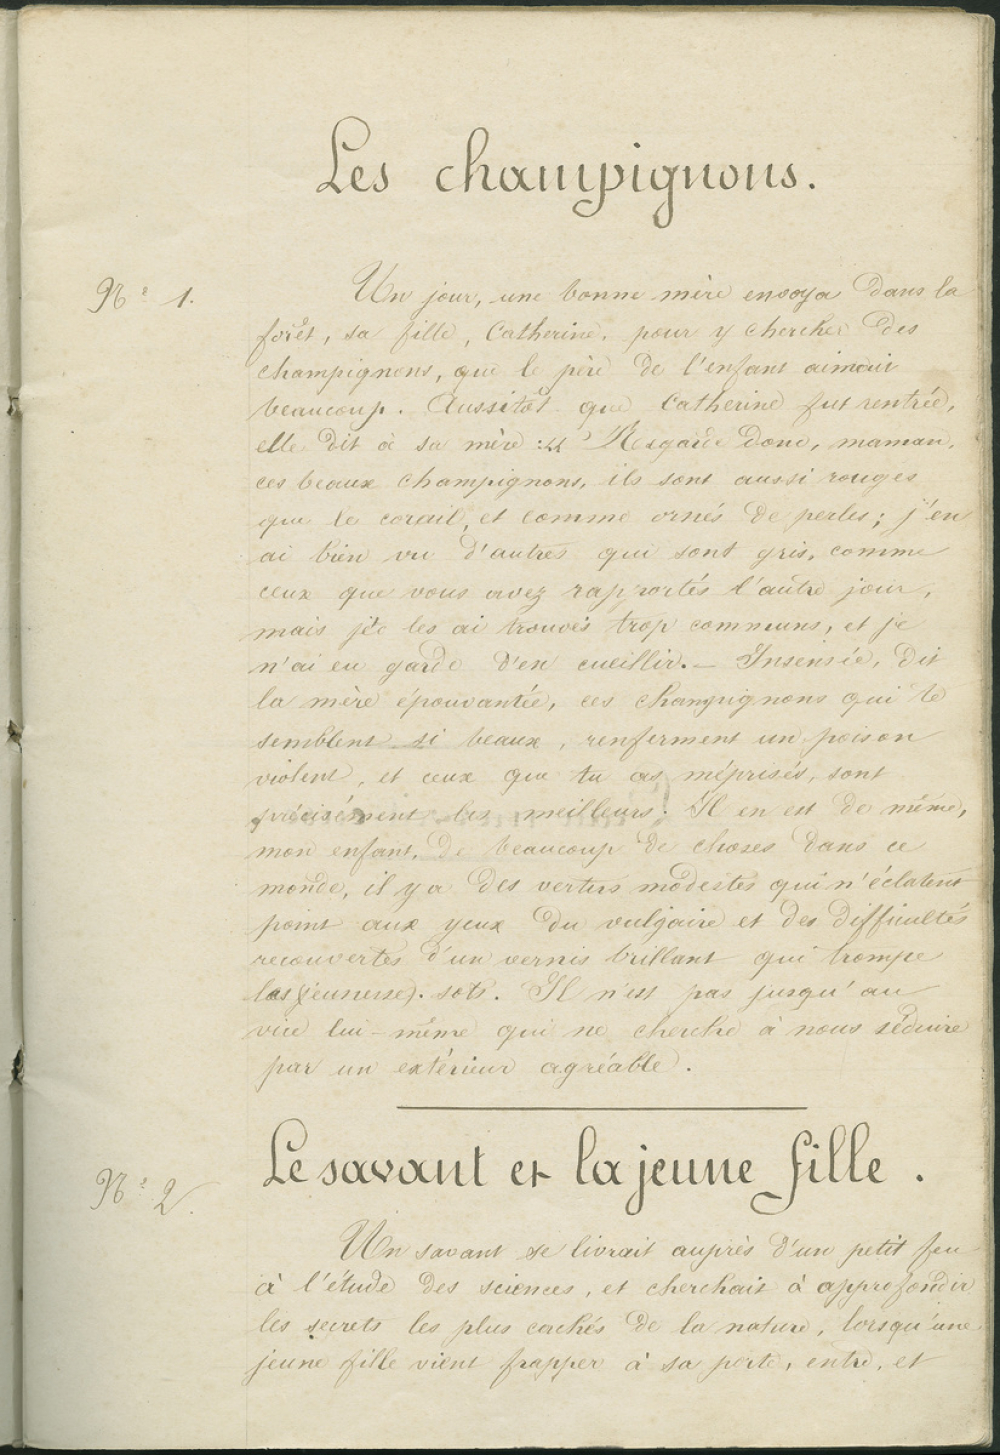 Les champignons.
Nº 1.
Un jour, une bonne mère envoya dans la
forêt, sa fille, Catherine, pour y chercher des
champignons, que le père de l'enfant aimait
beaucoup. Aussitôt que Catherine fut rentrée,
elle dit à sa mère : « Regarde donc, maman,
ces beaux champignons, ils sont aussi rouges
que le corail, et comme ornés de perles ; j'en
ai bien vu d'autres qui sont gris, comme
ceux que vous avez rapportés l'autre jour,
mais je les ai trouvés trop communs, et je
n'ai eu garde d'en cueillir. — Insensée, dit
la mère épouvantée, ces champignons qui te
semblent si beaux, renferment un poison
violent, et ceux que tu as méprisés, sont
précisément les meilleurs. Il en est de même,
mon enfant, de beaucoup de choses dans ce
monde, il y a des vertus modestes qui n'éclatent
point aux yeux du vulgaire et des difficultés
recouvertes d'un vernis brillant qui trompe
les (jeunesse). sots. Il n'est pas jusqu'au
vice lui-même qui ne cherche à nous séduire
par un extérieur agréable.
Le savant et la jeune fille.
Nº 2.
Un savant se livrait auprès d'un petit feu
à l'étude des sciences, et cherchait à approfondir
les secrets les plus cachés de la nature, lorsqu'une
jeune fille vient frapper à sa porte, entre, et